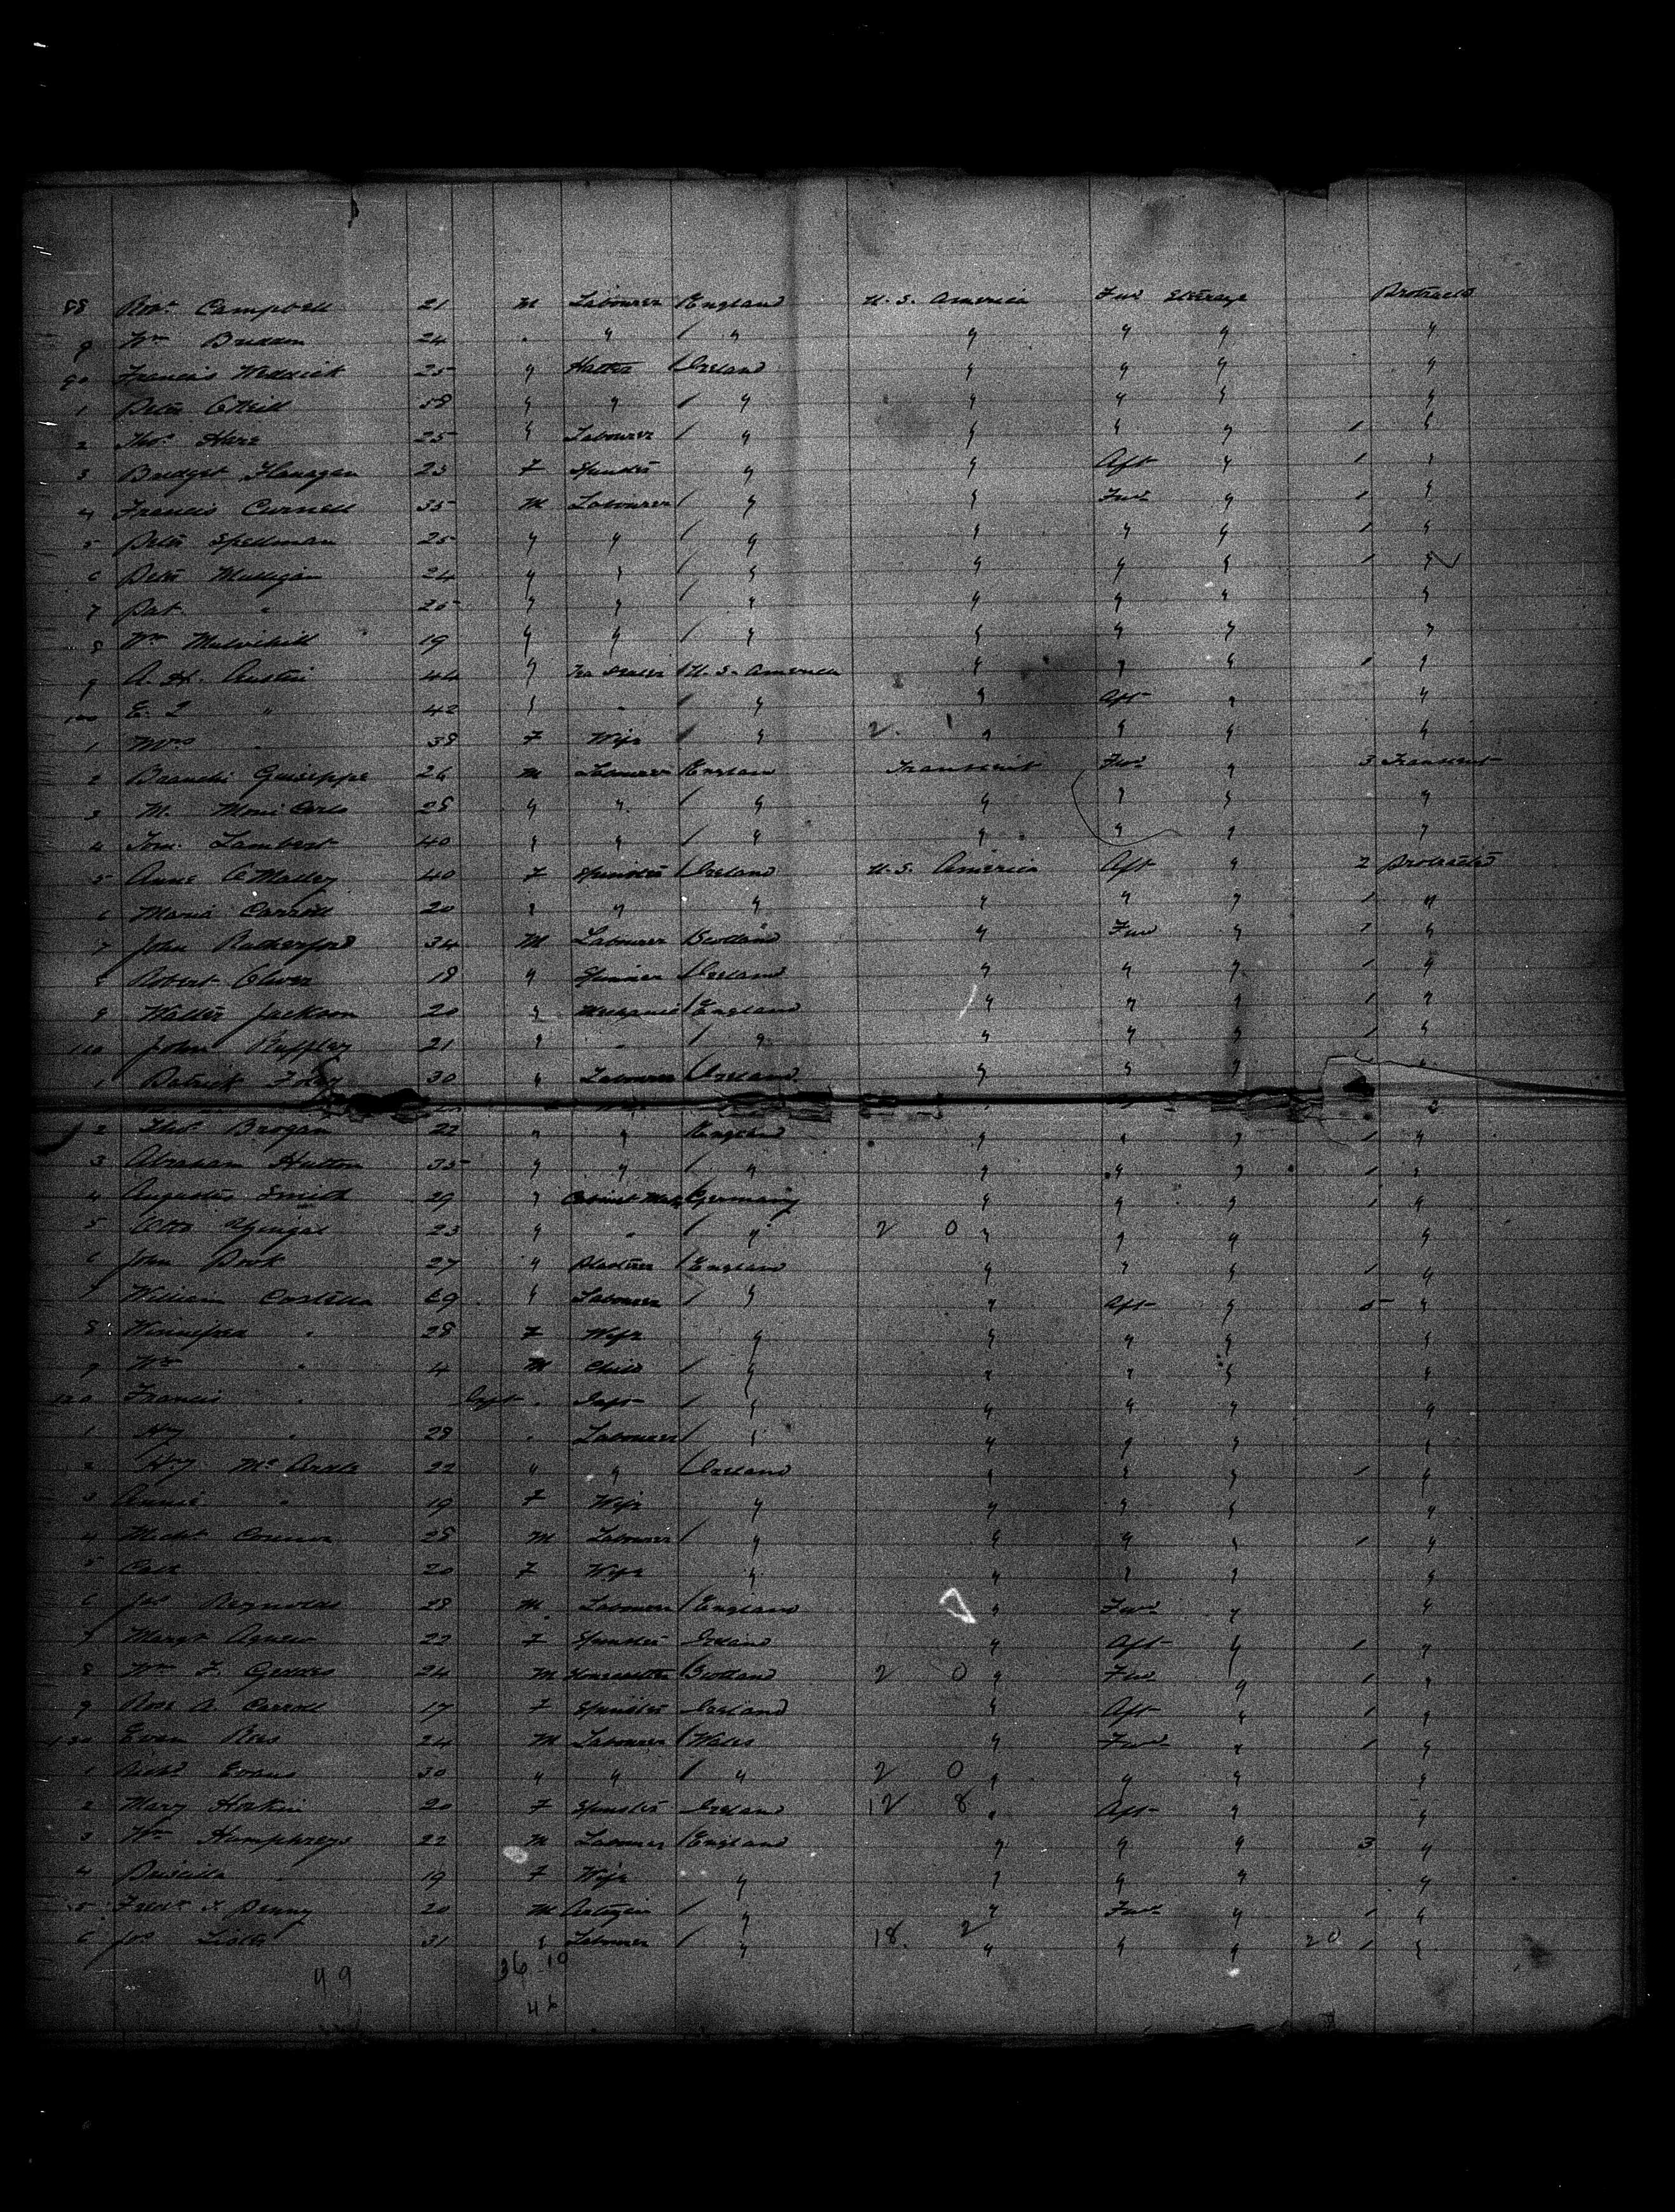 88 Robt. Campbell 21 M Labourer England U.S. America Fwd Steerage Protracted
9 Wm 24 " " " " " " "
90 Francis 25 " Hatter Ireland " " " "
1 Peter O'Neill 58 " " " " " " "
2 Thos. Hare 25 " Labourer " " " " 1 "
3 Bridget Flanagan 23 F Spinster " " Aft " 1 "
4 Francis Curnell 35 M Labourer " " Fwd " 1 "
5 Peter Spellman 25 " " " " " " 1 "
6 Peter Mulligan 24 " " " " " " 1 "
7 Pat " 25 " " " " " " "
8 Wm Mulvihill 19 " " " " " " "
9 A. H. Austin 44 " U.S. America " " " 1 "
100 E. " 42 " " " " Aft " "
1 Mrs " 38 F Wife " 2. 1 " " " "
2 Guiseppe 26 M Labourer England Transient Fwd " 3 Transient
3 M. Moni Carlo 28 " " " " " " "
4 Tom. Lambert 40 " " " " " " "
5 Anne O'Malley 40 F Spinster Ireland U.S. America Aft " 2 Protracted
6 Maria Carroll 20 " " " " " " 1 "
7 John Rutherford 34 M Labourer Scotland " Fwd " 1 "
8 Robert Oliver 18 " Spinner Ireland " " " 1 "
9 Walter Jackson 20 " Mechanic England " " " 1 "
110 John 21 " " " " " " 1 "
1 Patrick Foley 30 " Labourer Ireland " " " "
2 Thos. Brogan 22 " " England " " " 1 "
3 Abraham Hutton 35 " " " " " " 1 "
4 Augustus Smith 29 " Cabinet Maker Germany " " " 1 "
5 Otto 23 " " " 2 0 " " " "
6 John Pook 27 " Plasterer England " " " 1 "
7 William Costello 29 " Labourer " " Aft " 5 "
8 Winnifred " 28 F Wife " " " " "
9 Wm " 4 M Child " " " " "
120 Francis " Inft " Inft " " " " "
1 Hy " 28 " Labourer " " " " "
2 Hy Mc 22 " " Ireland " " " 1 "
3 Annie " 19 F Wife " " " " "
4 Michl. Connor 28 M Labourer " " " " 1 "
5 Cath 20 F Wife " " " " "
6 Jas Reynolds 28 M Labourer England " Fwd " "
7 Margt Agnew 22 F Spinster Ireland " Aft " 1 "
8 Wm F. Geddes 24 M Scotland 2 0 " Fwd " 1 "
9 Rose A. Carroll 17 F Spinster Ireland " Aft " 1 "
130 Evan Rees 24 M Labourer Wales " Fwd " 1 "
1 Richd Evans 30 " " " 2 0 " " " "
2 Mary Horkin 20 F Spinster Ireland 12 8 " Aft " "
3 Wm Humphreys 22 M Labourer England " " " 3 "
4 Priscilla " 19 F Wife " " " " "
5 Fredk J. Penny 20 M Artizan " " Fwd " 1 "
6 Jos 31 " Labourer " 18. 2 " " " 20 1 "
49 36 10
46